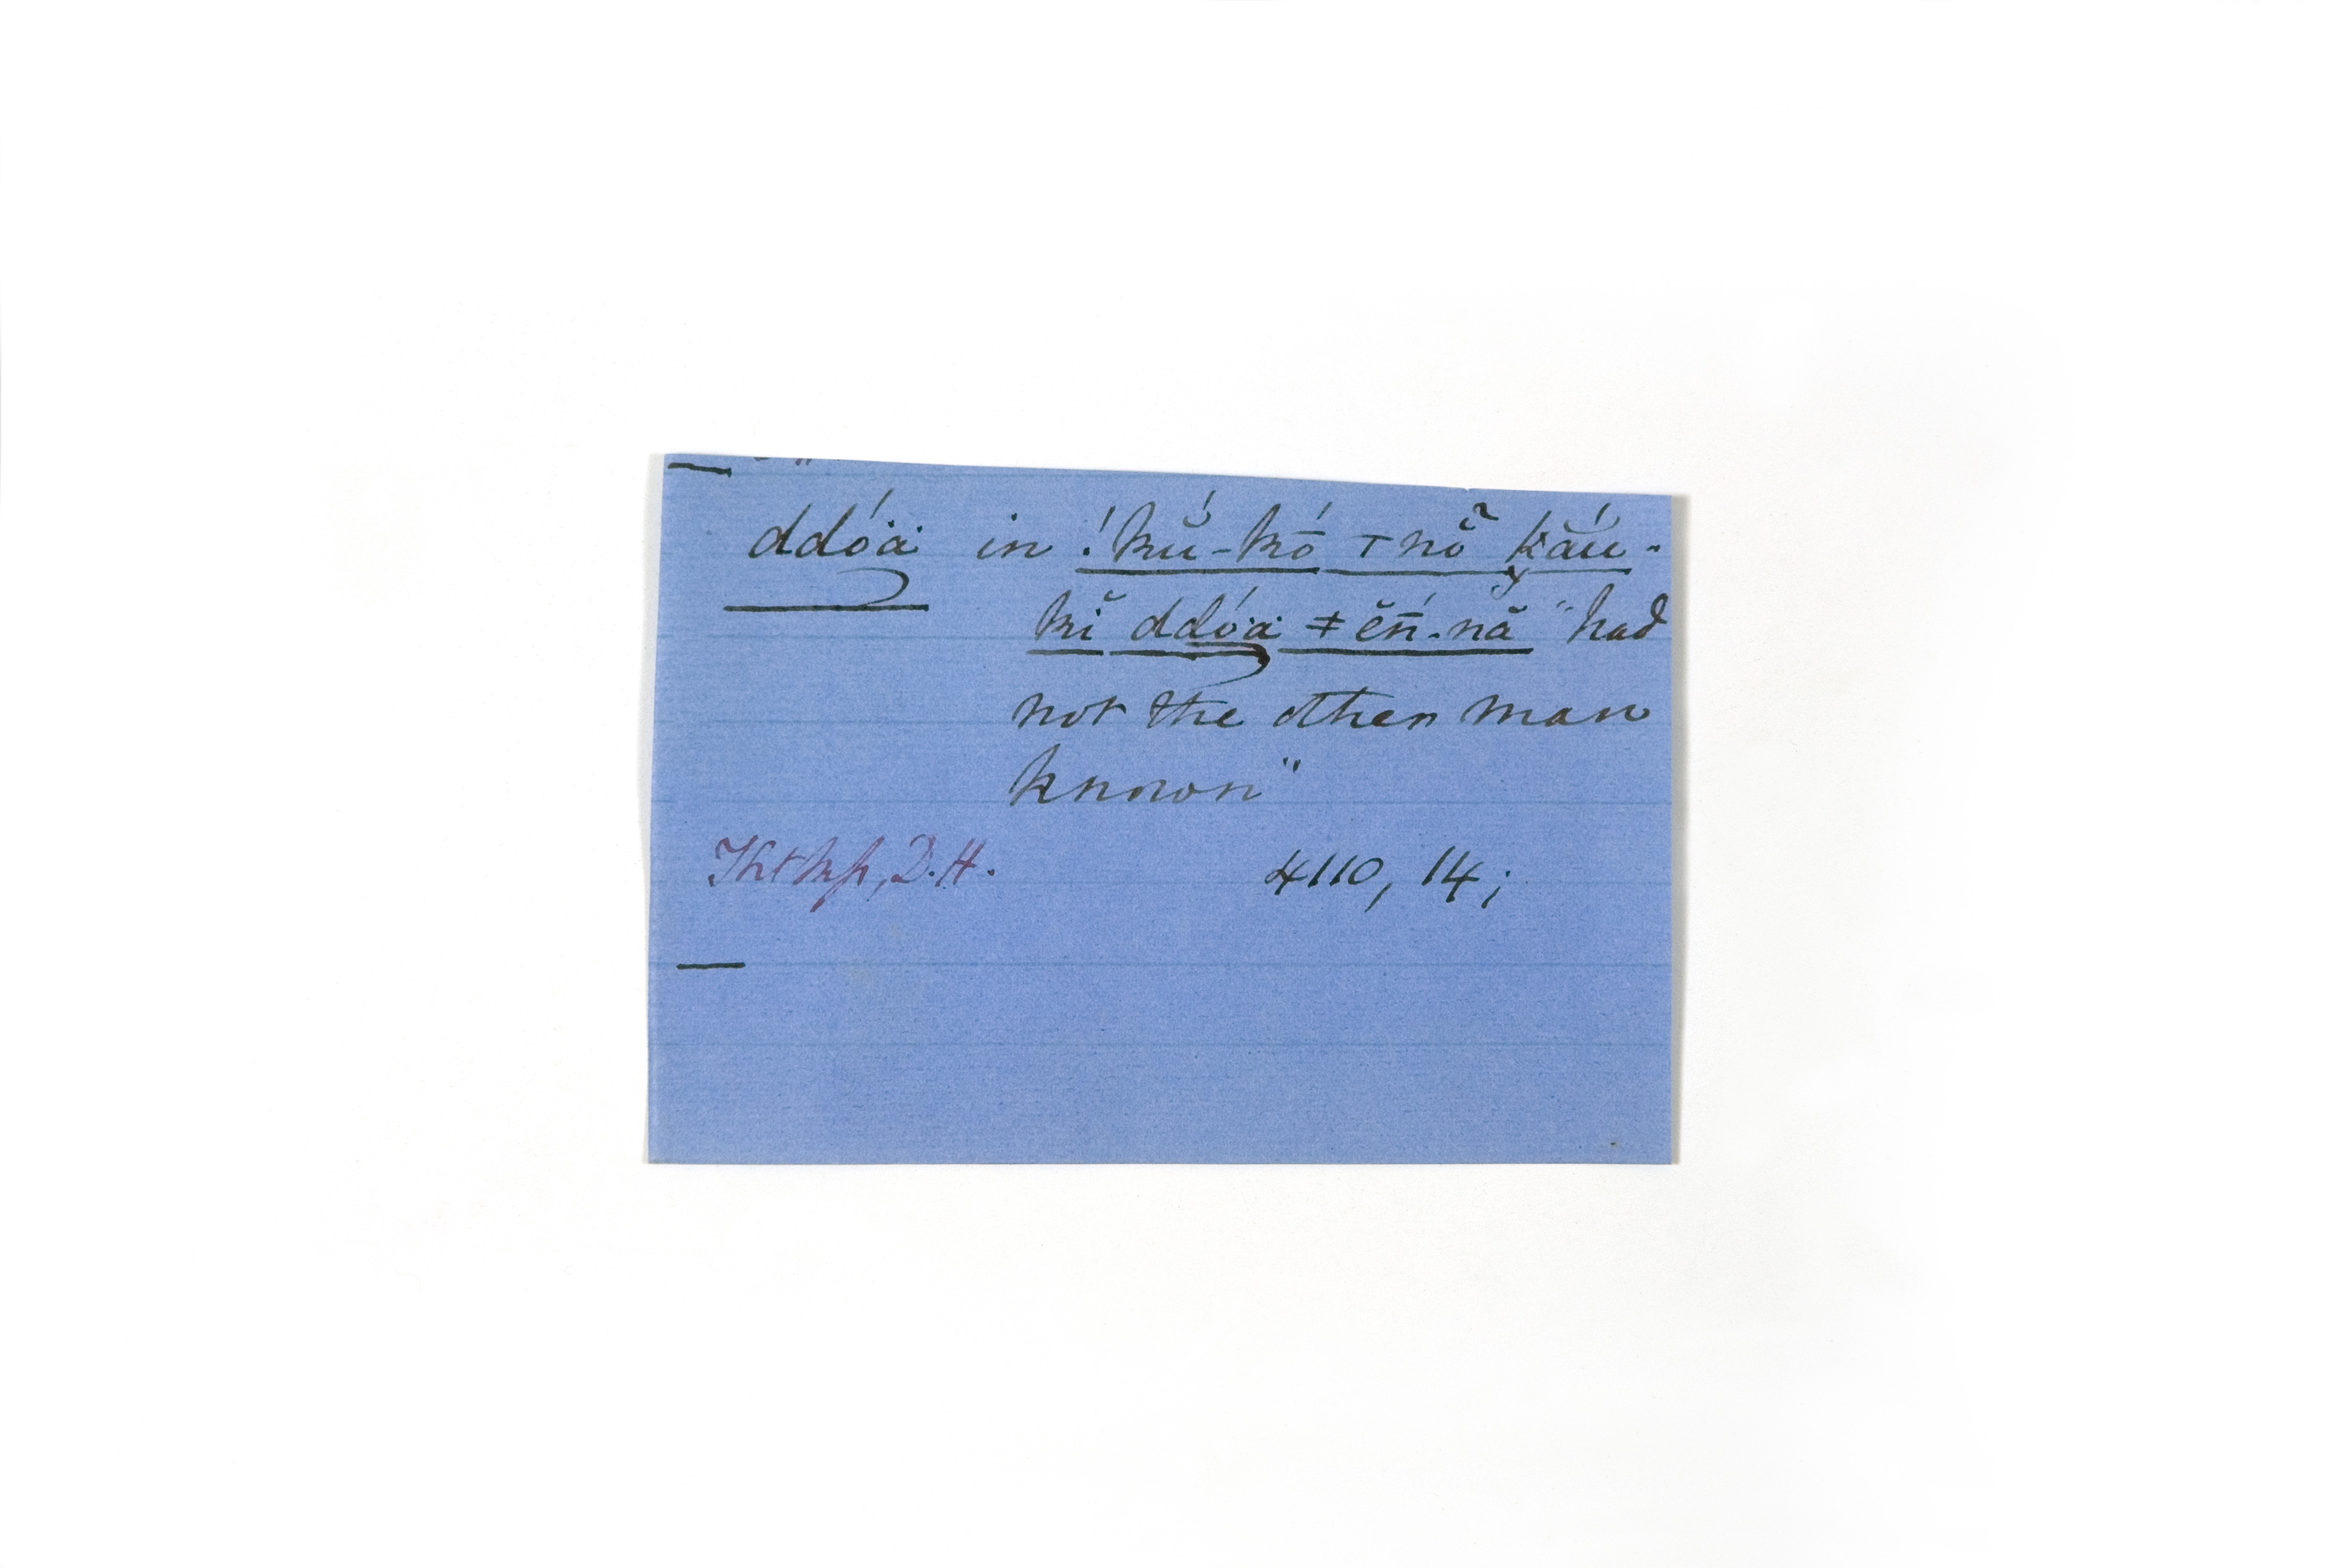 ddóä in !kŭ́-kṓ ⊤nŏ̃ k̭ắu-
kĭ ddóä ǂĕń̄-nă "had
not the other man
known"
D.H. 4110, 14;